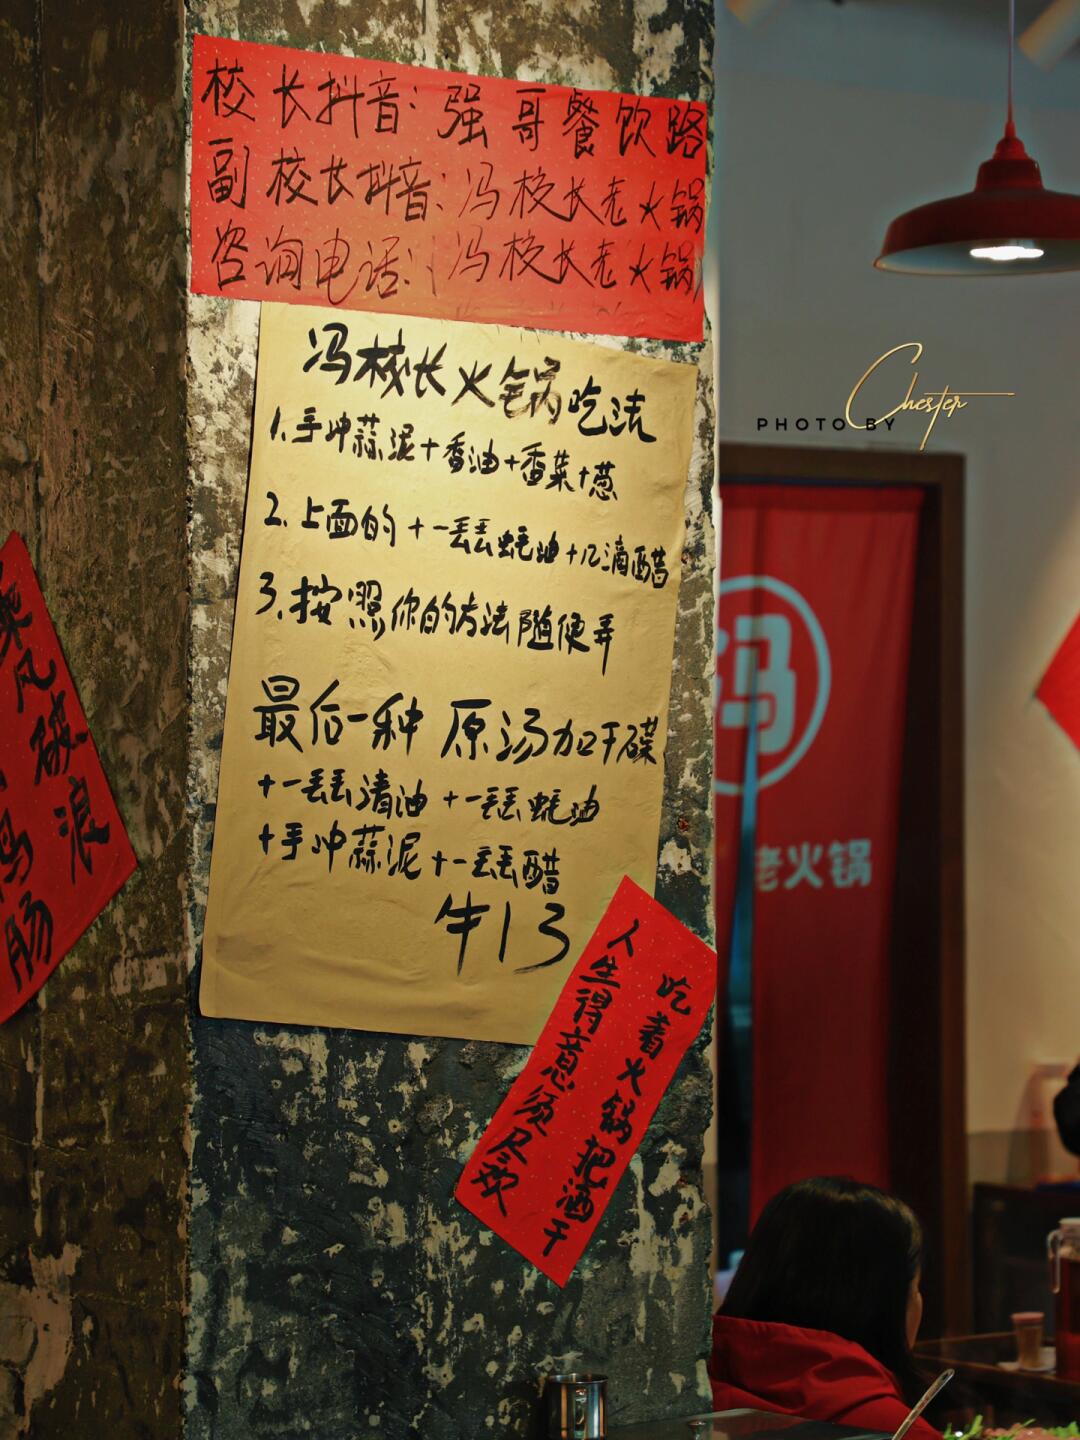 校长抖音：强哥餐饮路
副校长抖音：冯校长老火锅
咨询电话：（冯校长老火锅）
冯校长火锅吃法
1.手冲蒜泥+香油+香菜+葱
2.上面的+一丢丢蚝油+几滴醋
3.按照你的方法随便弄
最后一种 原汤加干碟
+一丢丢清油+一丢丢蚝油
+手冲蒜泥+一丢丢醋
牛13
吃着火锅把酒干
人生得意须尽欢
乘风破浪
鸭肠
PHOTO BY Chester
冯
老火锅